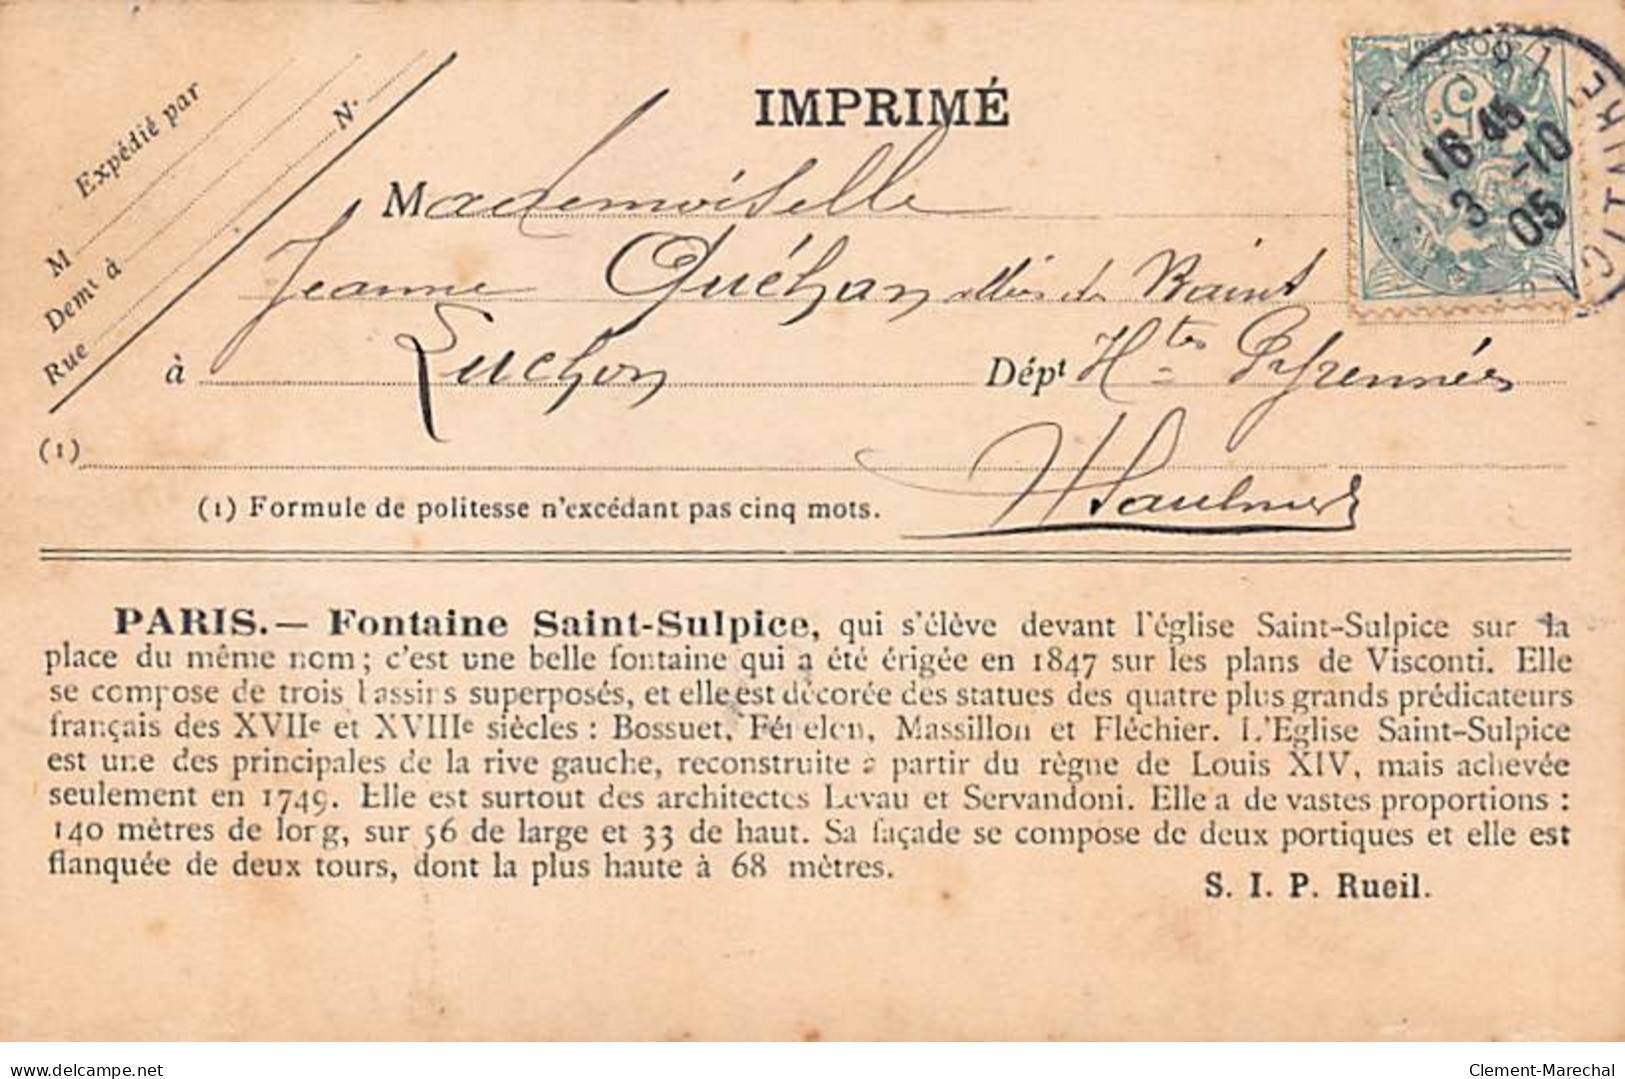 IMPRIMÉ
Expédié par
M
Demt à
Rue
N.
16 45
3 -10
05
Mademoiselle
Jeanne Quéhan allées des Bains
à Luchon Dépt Htes Pyrennées
(1)
(1) Formule de politesse n'excédant pas cinq mots.
PARIS.— Fontaine Saint-Sulpice, qui s'élève devant l'église Saint-Sulpice sur la
place du même nom ; c'est une belle fontaine qui a été érigée en 1847 sur les plans de Visconti. Elle
se compose de trois bassins superposés, et elle est décorée des statues des quatre plus grands prédicateurs
français des XVIIe et XVIIIe siècles : Bossuet, Fénelon, Massillon et Fléchier. L'Eglise Saint-Sulpice
est une des principales de la rive gauche, reconstruite a partir du règne de Louis XIV, mais achevée
seulement en 1749. Elle est surtout des architectes Levau et Servandoni. Elle a de vastes proportions :
140 mètres de long, sur 56 de large et 33 de haut. Sa façade se compose de deux portiques et elle est
flanquée de deux tours, dont la plus haute à 68 mètres.
S. I. P. Rueil.
delcampe.net
Clement-Marechal